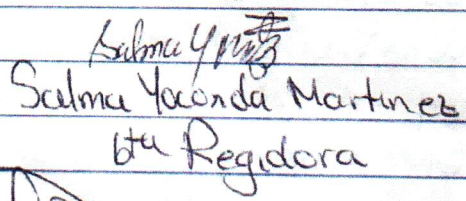 Salma
Salma Yoconda Martinez
6ta Regidora